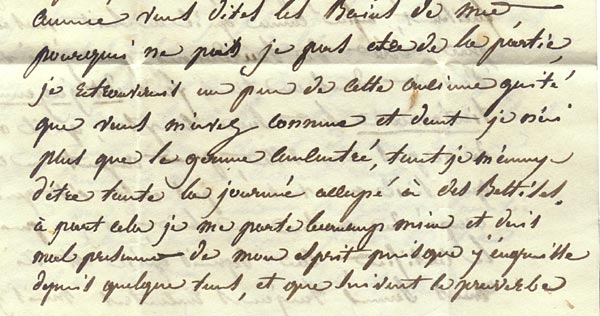 année vous dites les Bains de mer
pourquoi ne puis je pas etre de la partie,
je retrouverais un peu de cette ancienne gaité
que vous m'avez connue et dont je n'ai
plus que le germe concentré, tant je m'ennuye
d'être toute la journée occupé à des Bettises.
à part cela je me porte beaucoup mieux et suis
mal presume de mon esprit puisque j'engraisse
depuis quelque tems, et que suivant le proverbe